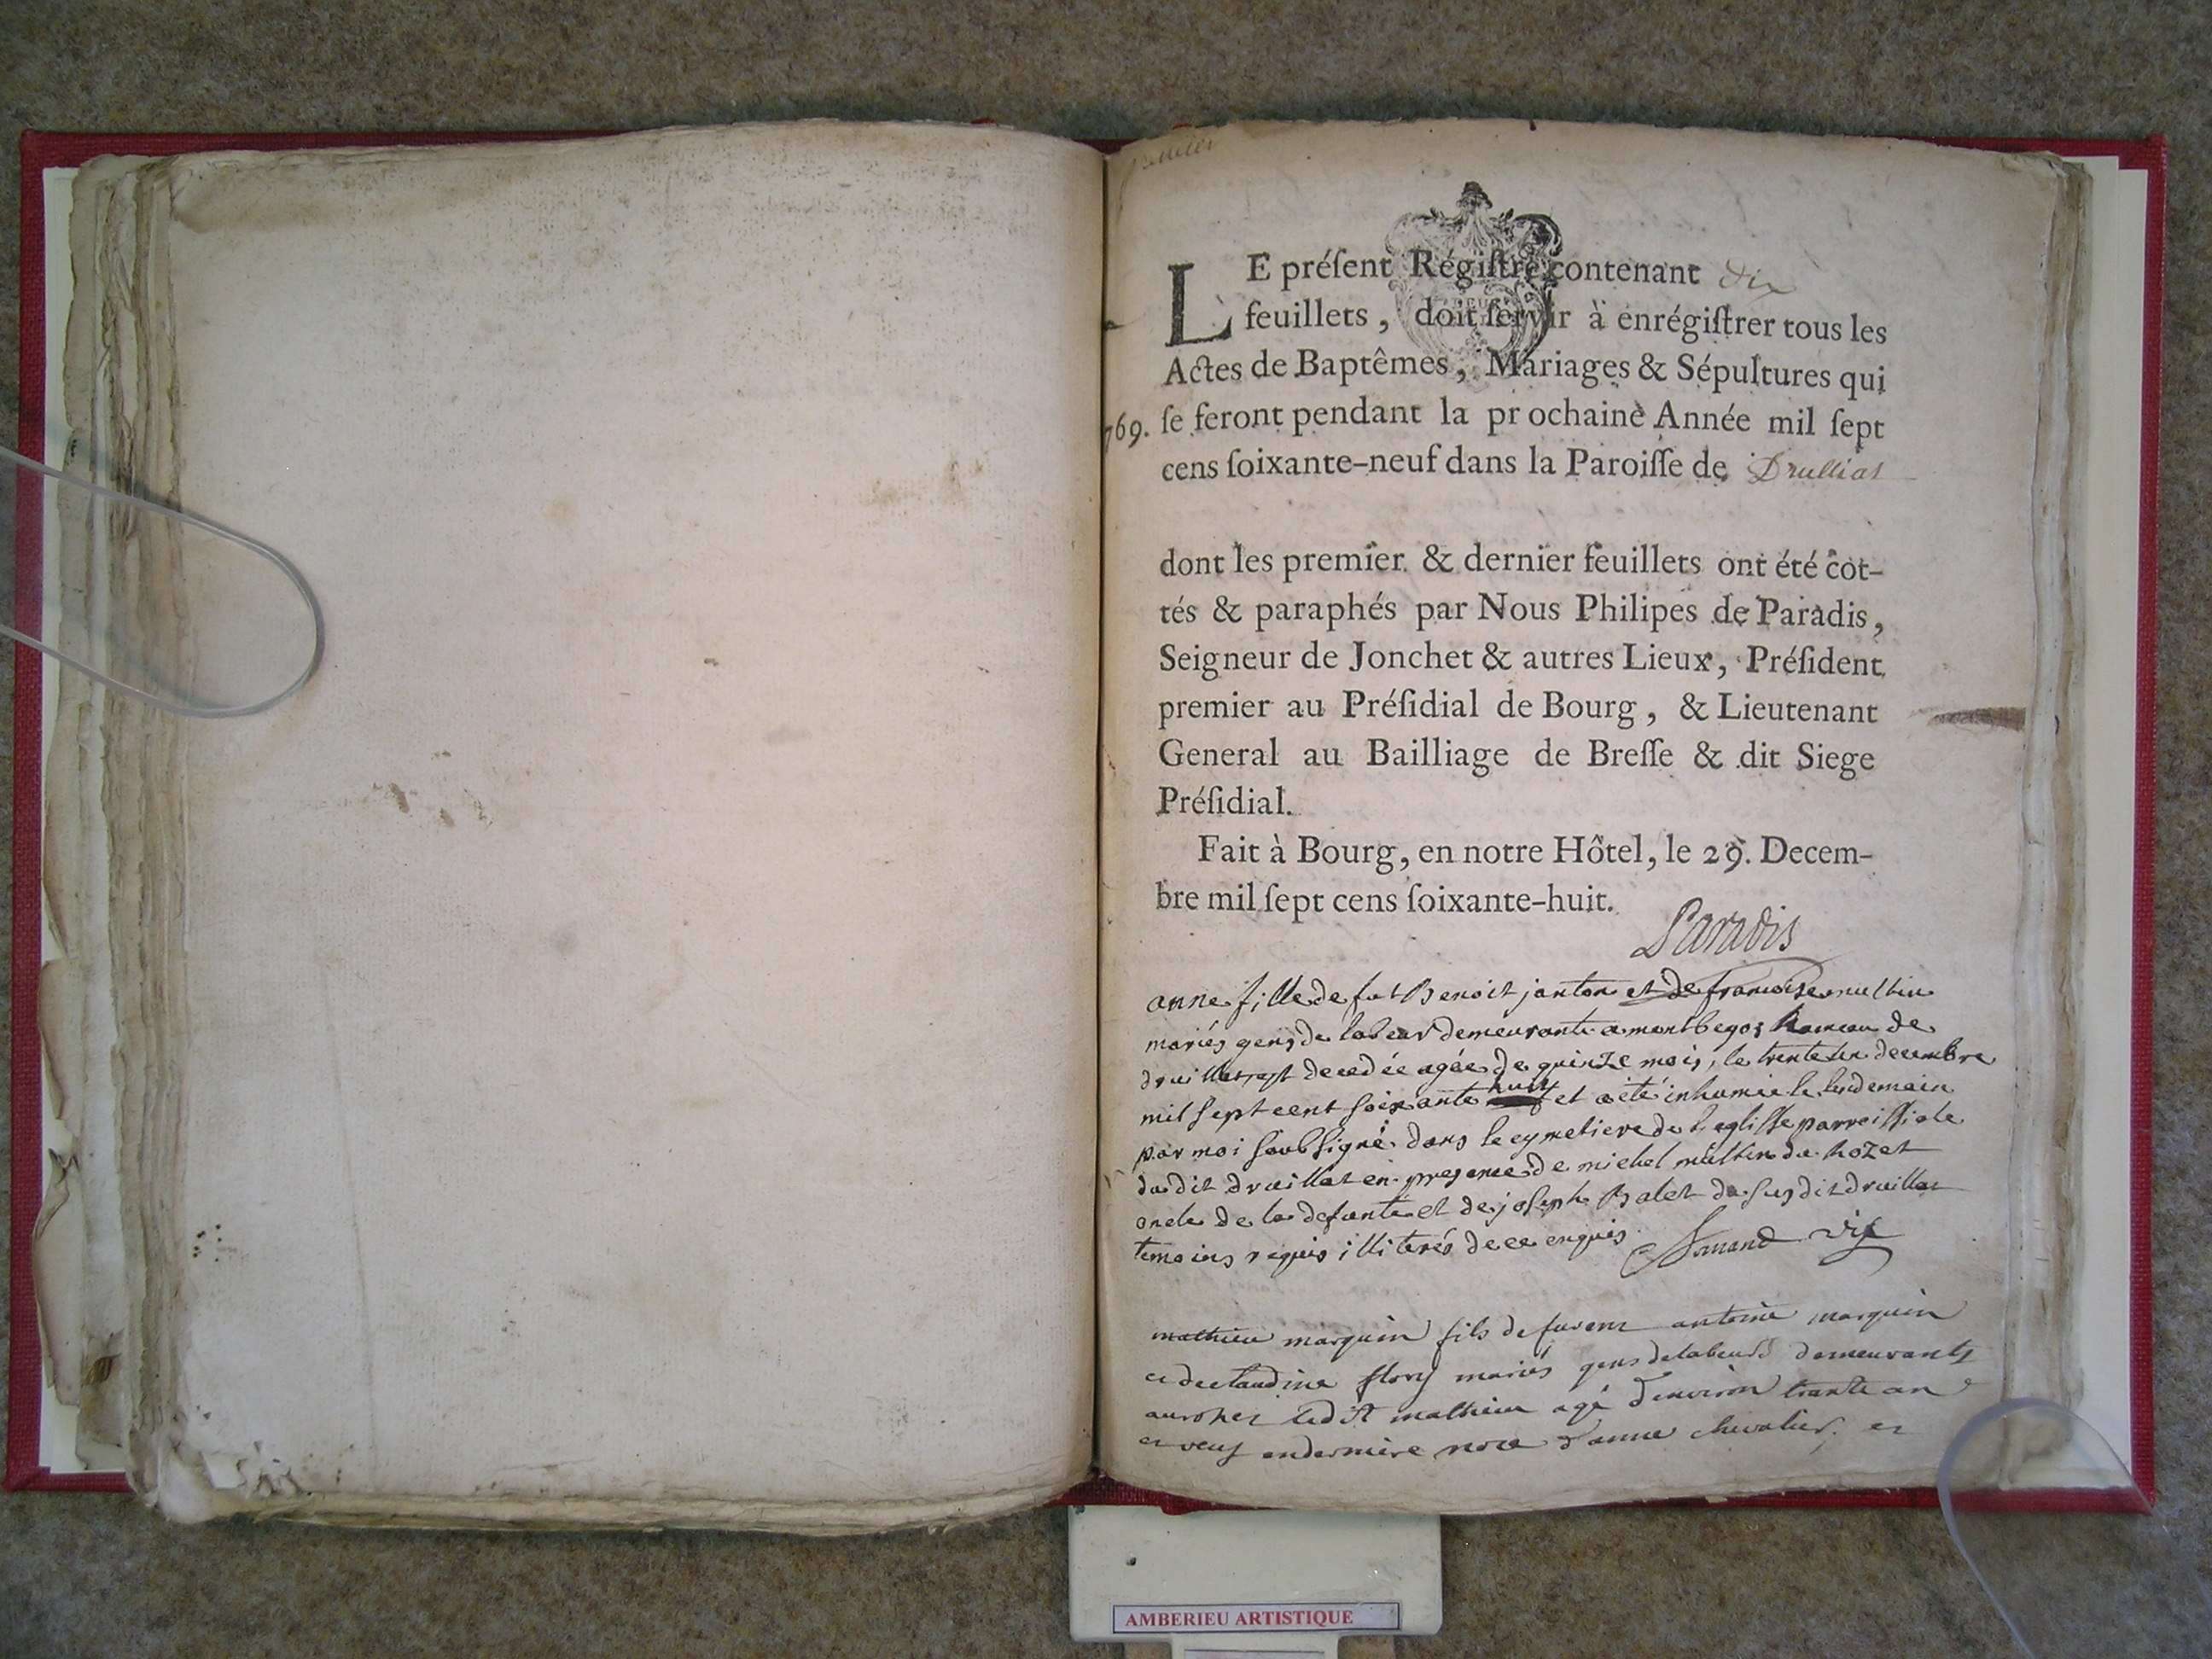 LE préſent Régiſtre contenant dix
feuillets, doit ſervir à enrégiſtrer tous les
Actes de Baptêmes, Mariages & Sépultures qui
769. ſe feront pendant la pr ochaine Année mil ſept
cens ſoixante-neuf dans la Paroiſſe de Drulliat
dont les premier & dernier feuillets ont été cot-
tés & paraphés par Nous Philipes de Paradis,
Seigneur de Jonchet & autres Lieux, Préſident
premier au Préſidial de Bourg, & Lieutenant
General au Bailliage de Breſſe & dit Siege
Préſidial.
Fait à Bourg, en notre Hôtel, le 29. Decem-
bre mil ſept cens ſoixante-huit.
Paradis
anne fille de fut Benoit janton et de francoise multin
mariés gens de labeur demeurants a montbegos hameau de
druillat, est decedée agée de quinze mois, le trente un decembre
mil sept cent soixante huit et a été inhumée le lendemain
par moi soubsigné dans le cymetiere de l'eglisse parroissiale
du dit druillat en presence de michel multin du hozet
oncle de la defunte et de joseph Balet du susdit druillat
temoins requis illiterés de ce enquis. vic
mathieu marquin fils de furent antoine marquin
et de claudine flory mariés gens de labeurs demeurants
au ledit mathieu agé d'environ trante an
et veuf en derniere noce d'anne chevalier, et
AMBERIEU ARTISTIQUE